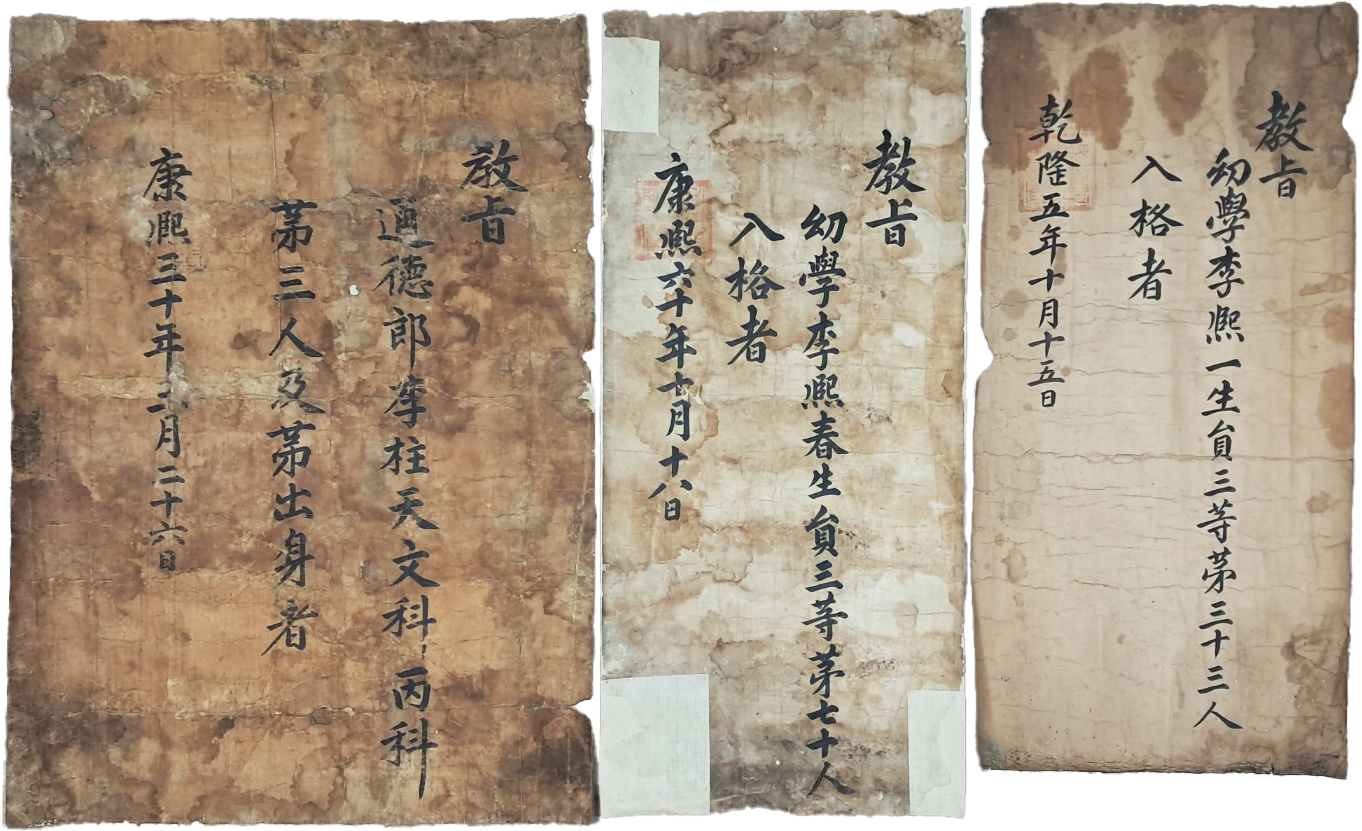 教旨
通德郎李柱天文科丙科
苐三人及苐出身者
康熙三十年三月二十六日
教旨
幼學李熙春生員三等苐七十人
入格者
康熙六十年十月十八日
教旨
幼學李熙一生員三等苐三十三人
入格者
乾隆五年十月十五日